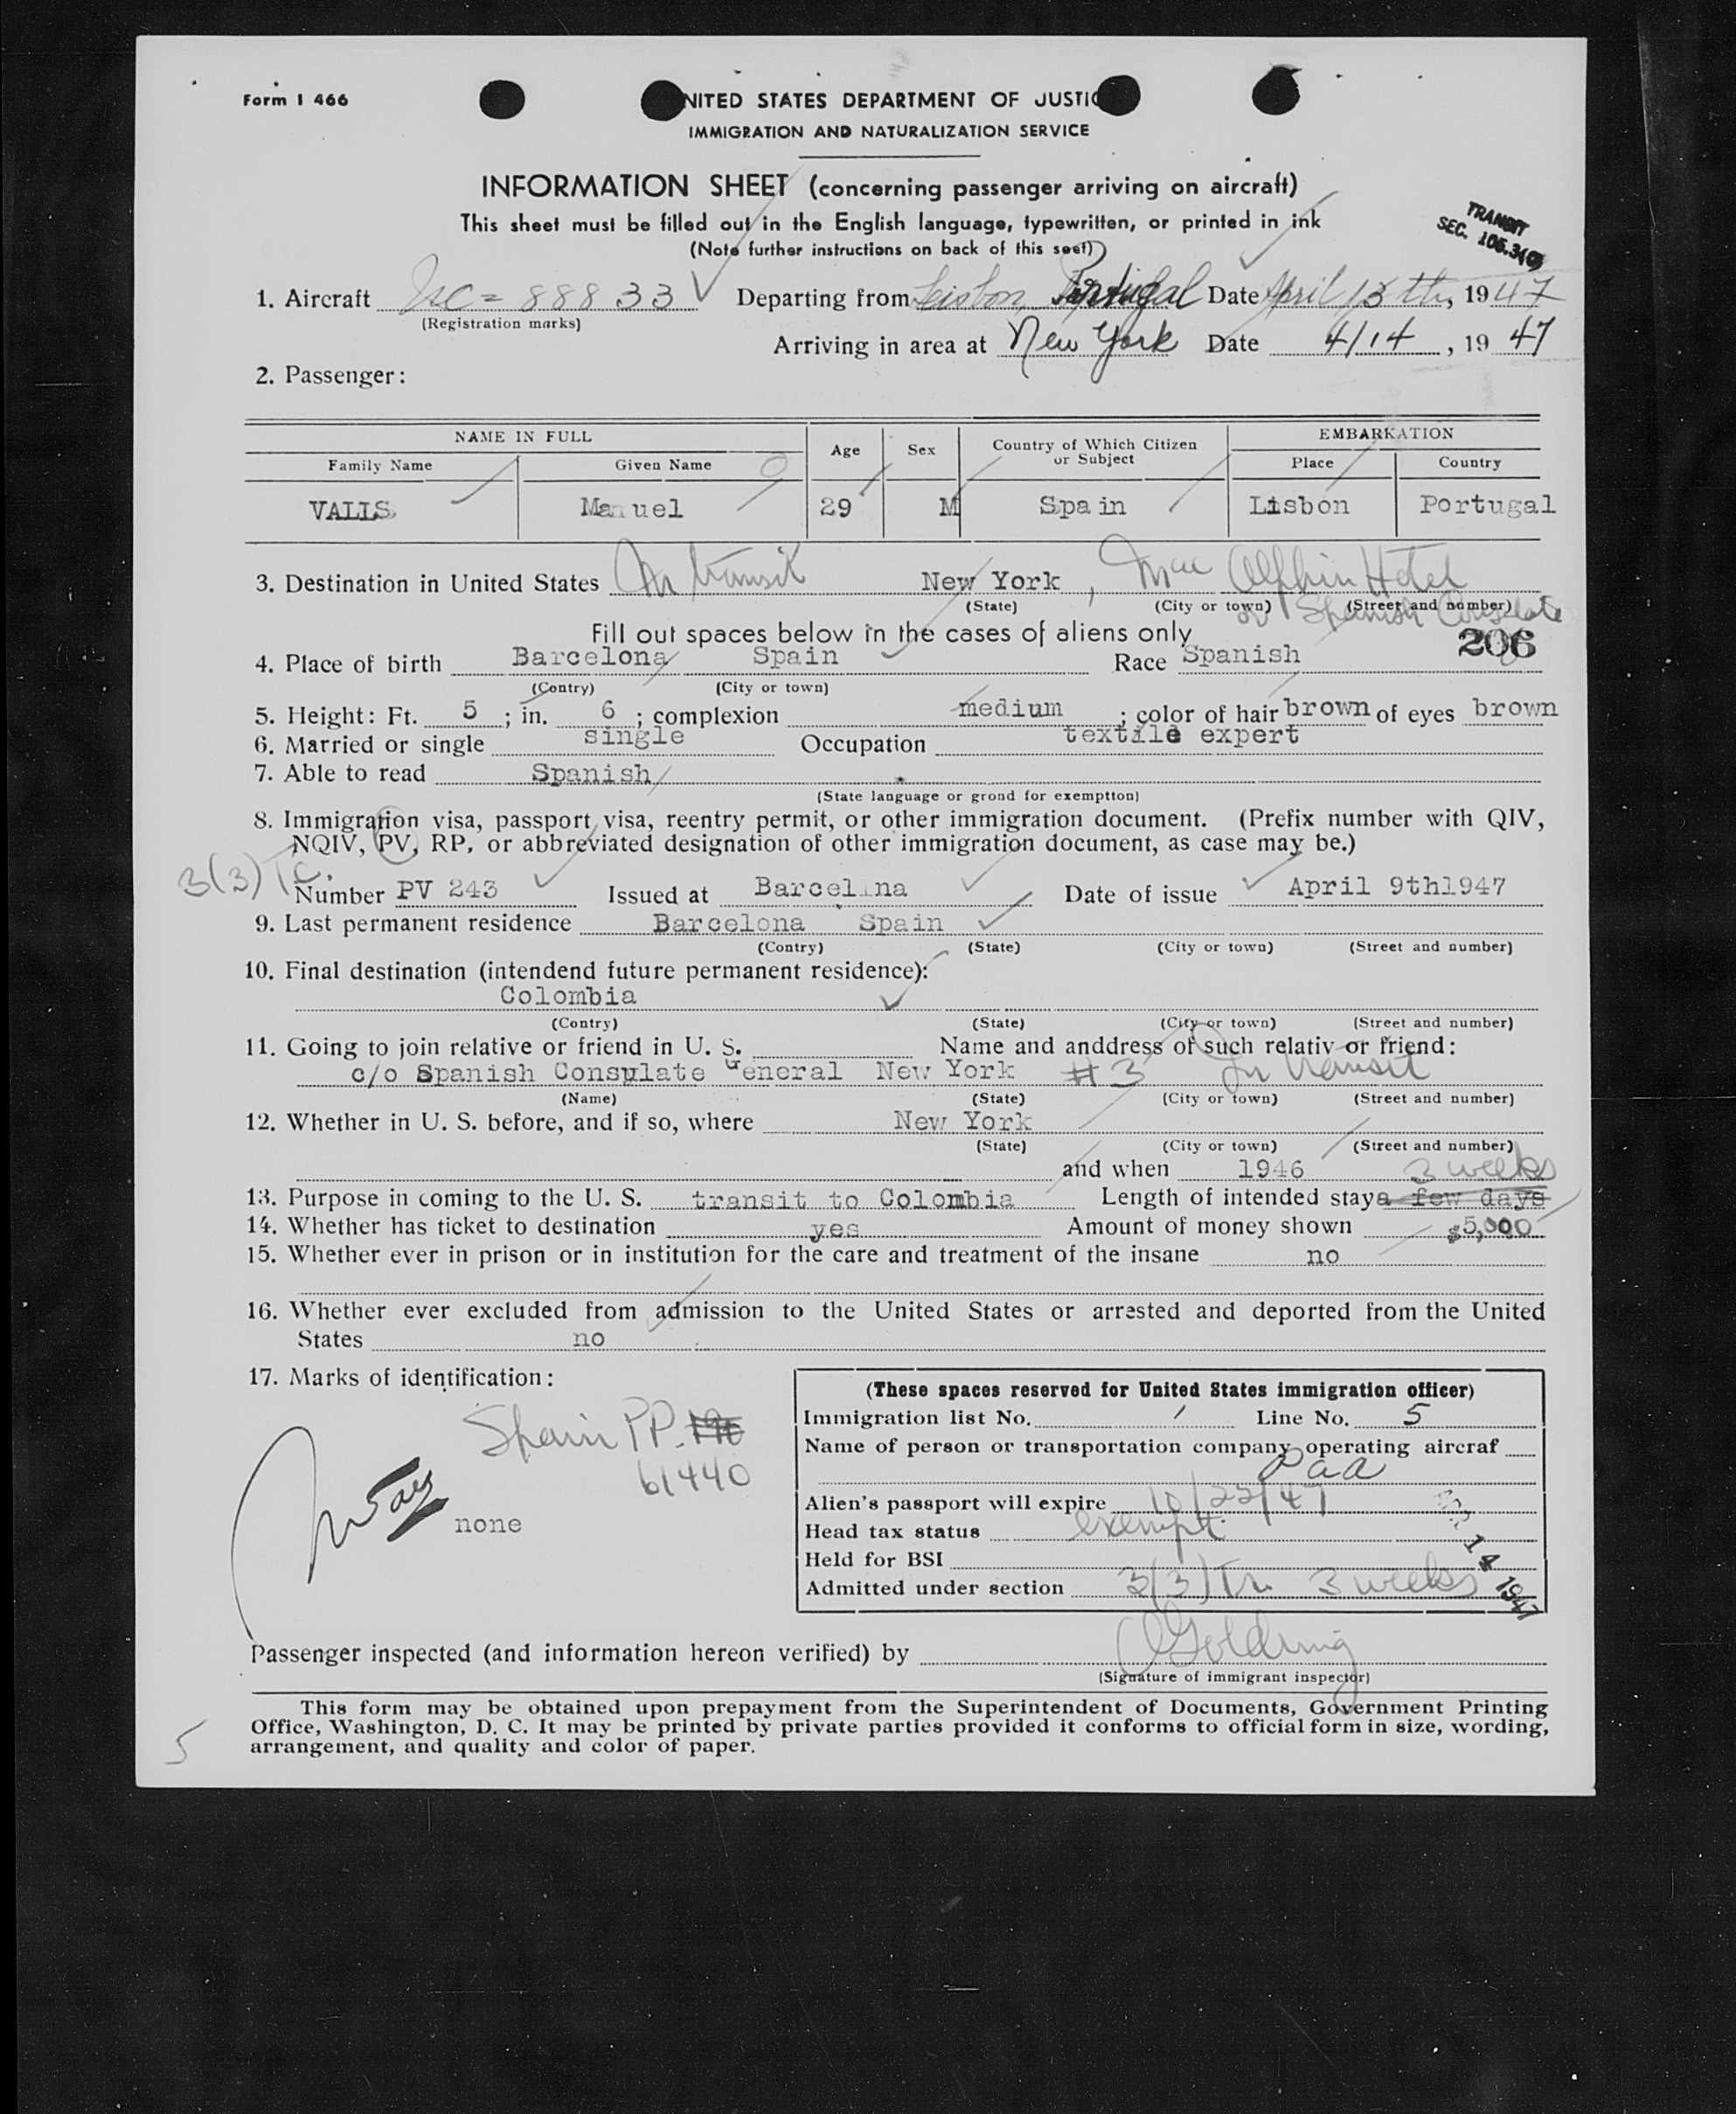 Form I 466
NITED STATES DEPARTMENT OF JUSTIC
IMMIGRATION AND NATURALIZATION SERVICE
INFORMATION SHEET (concerning passenger arriving on aircraft)
This sheet must be filled out in the English language, typewritten, or printed in ink
(Note further instructions on back of this seet)
TRANSIT
SEC. 105.3(
1. Aircraft NC = 88833 Departing from Lisbon, Portugal Date April 13 th, 1947
(Registration marks)
Arriving in area at New York Date 4/14, 1947
2. Passenger:
NAME IN FULL Age Sex Country of Which Citizen or Subject EMBARKATION
Family Name Given Name Place Country
VALLS Manuel 29 M Spain Lisbon Portugal
3. Destination in United States In transit New York, Mac Alphin Hotel
(State) (City or town) (Street and number)
or Spanish Consulate
Fill out spaces below in the cases of aliens only
206
4. Place of birth Barcelona Spain Race Spanish
(Contry) (City or town)
5. Height: Ft. 5 ; in. 6 ; complexion medium ; color of hair brown of eyes brown
6. Married or single single Occupation textile expert
7. Able to read Spanish
(State language or grond for exemption)
8. Immigration visa, passport visa, reentry permit, or other immigration document. (Prefix number with QIV,
NQIV, PV, RP, or abbreviated designation of other immigration document, as case may be.)
3(3)
Number PV 243 Issued at Barcelina Date of issue April 9th1947
9. Last permanent residence Barcelona Spain
(Contry) (State) (City or town) (Street and number)
10. Final destination (intendend future permanent residence):
Colombia
(Contry) (State) (City or town) (Street and number)
11. Going to join relative or friend in U. S. Name and anddress of such relativ or friend:
c/o Spanish Consulate General New York #3 In transit
(Name) (State) (City or town) (Street and number)
12. Whether in U. S. before, and if so, where New York
(State) (City or town) (Street and number)
and when 1946 3 weeks
13. Purpose in coming to the U. S. transit to Colombia Length of intended stay a few days
14. Whether has ticket to destination yes Amount of money shown $5,000
15. Whether ever in prison or in institution for the care and treatment of the insane no
16. Whether ever excluded from admission to the United States or arrested and deported from the United
States no
17. Marks of identification:
Spain PP.
61440
none
(These spaces reserved for United States immigration officer)
Immigration list No. 1 Line No. 5
Name of person or transportation company operating aircraf
Paa
Alien's passport will expire 10/22/47
Head tax status exempt
Held for BSI
Admitted under section 3(3) Tr. 3 weeks
APR 14 1947
Passenger inspected (and information hereon verified) by Golding
(Signature of immigrant inspector)
This form may be obtained upon prepayment from the Superintendent of Documents, Government Printing
Office, Washington, D. C. It may be printed by private parties provided it conforms to official form in size, wording,
arrangement, and quality and color of paper.
5